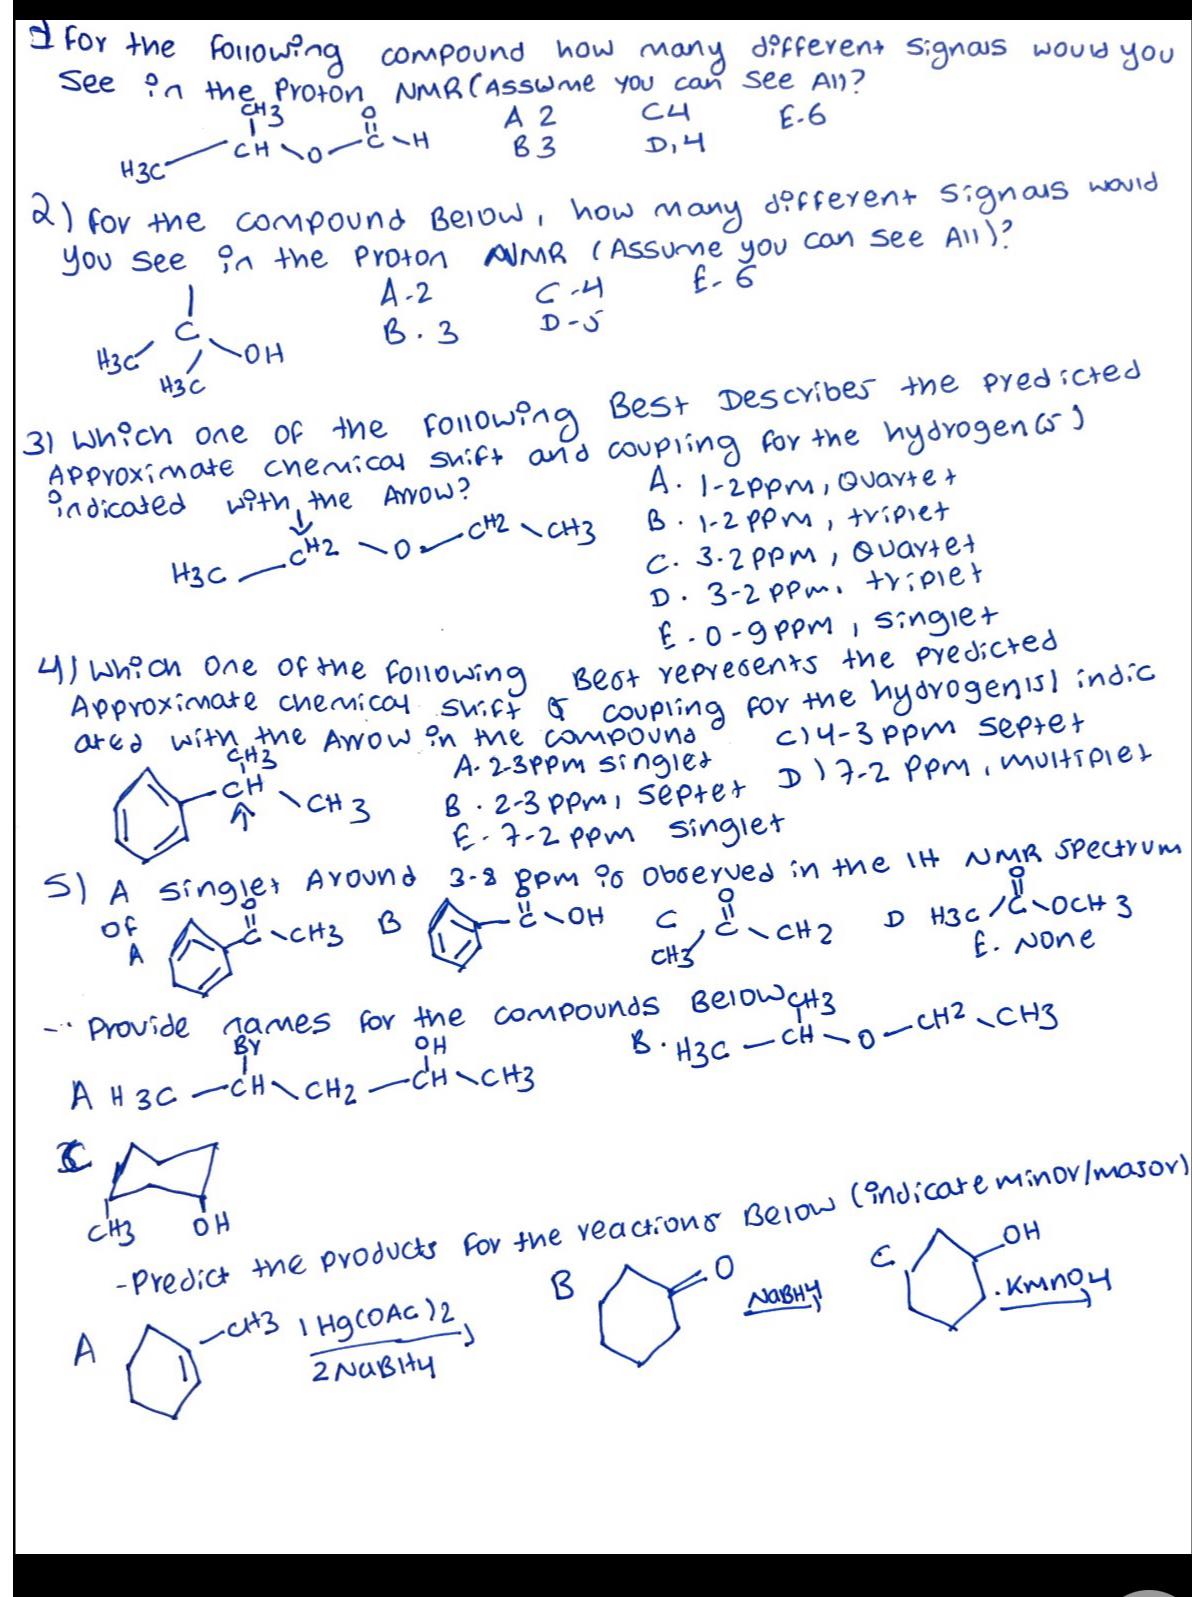 1 For the following compound how many different signals would you
see in the Proton NMR (Assume you can see All?
CH3 O A 2 C4 E-6
H3C CH O C H B3 D,4
2) for the compound Below, how many different signals would
you see in the Proton NMR (Assume you can see All)?
A-2 C-4 E-6
C B.3 D-5
H3C OH
H3C
3) Which one of the following Best Describes the predicted
Approximate chemical shift and coupling for the hydrogen(s)
indicated with the Arrow?
A. 1-2ppm, Quartet
B. 1-2ppm, triplet
H3C CH2 O CH2 CH3
C. 3.2ppm, Quartet
D. 3-2ppm, triplet
E-0-9ppm, singlet
4) Which One of the following Best represents the predicted
Approximate chemical shift & coupling for the hydrogen(s) indic
ated with the Arrow in the compound C) 4-3 ppm septet
CH3 A. 2-3ppm singlet
CH CH3 B. 2-3ppm, septet D) 7-2 ppm, multiplet
E-7-2ppm singlet
5) A singlet Around 3-8 ppm is observed in the 1H NMR spectrum
of A C O CH3 B C O OH C CH3 C O CH2 D H3C C O OCH3
E. None
-. Provide names for the compounds Below
A H3C CH Br CH2 CH OH CH3 B. H3C CH CH3 O CH2 CH3
C
CH3 OH
-Predict the products for the reactions Below (indicate minor/masor)
A CH3 1 Hg(OAc)2
2 NaBH4
B O NaBH4
C. OH .KmnO4